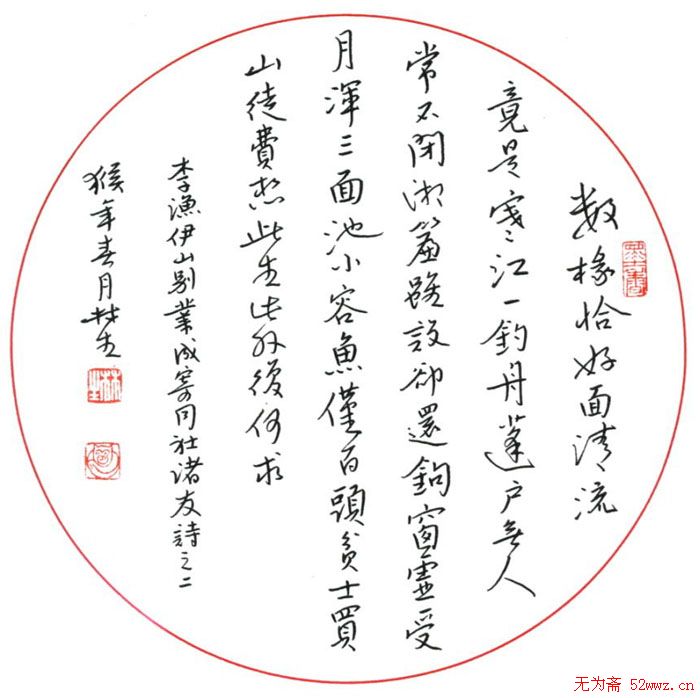 数椽恰好面清流
竟是寒江一钓舟蓬户无人
常不闭湘簾虽设却还鉤窗虚受
月浑三面池小容魚僅百頭贫士買
山徒費想此生此外復何求
李漁伊山别業成寄同社诸友詩之二
猴年春月林生
无为斋 52wwz.cn